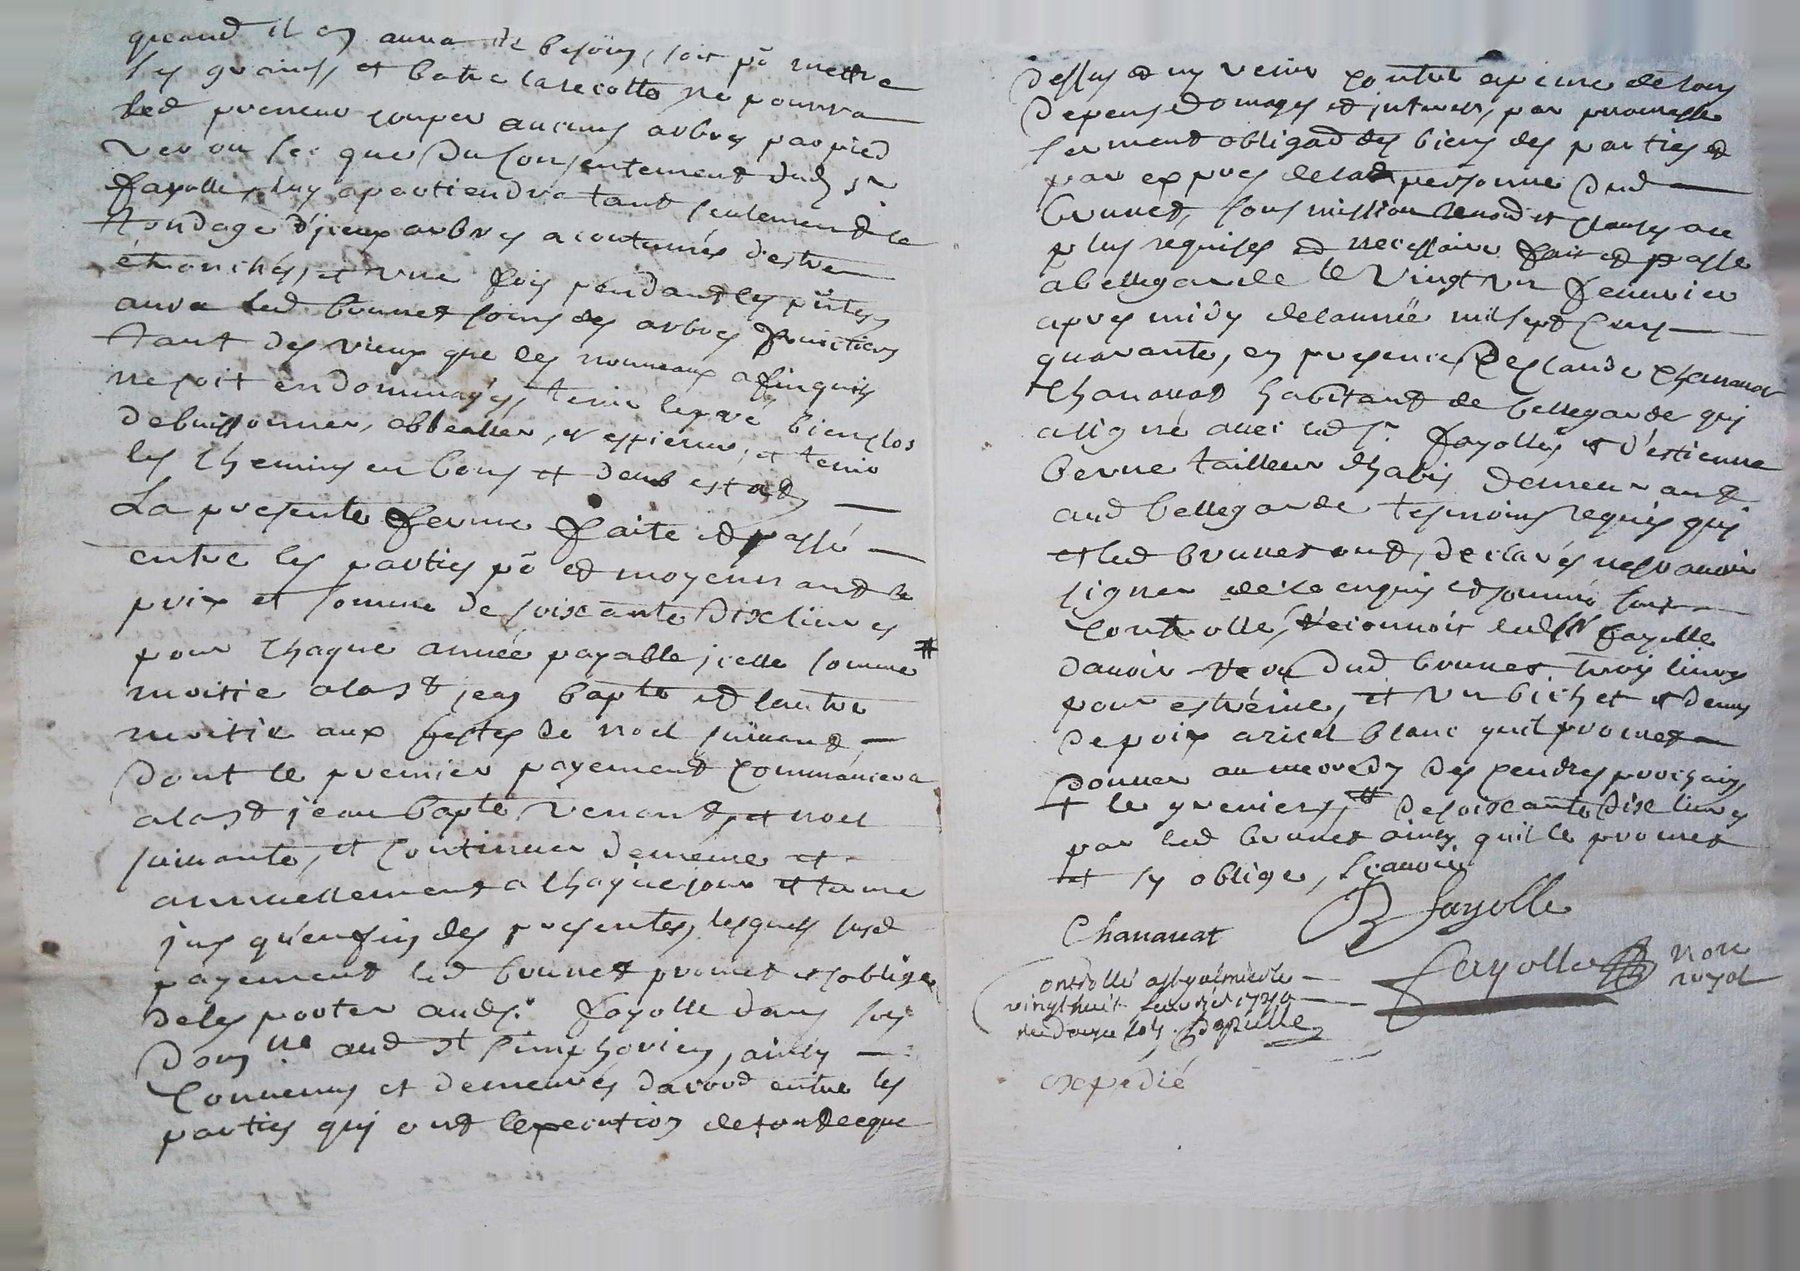 quand il en aura de besoin, soit pr mettre
ses grains, et batre la recolte, ne pourra
led preneur couper aucuns arbres par pied
ver ou sec que du consentement dud sr
fayolle, luy apartiendra tant seulement le
tondage d'jceux arbres acoutumés d'estre
ébranchés, et une fois pendant les ptes,
aura led brunet soins des arbres fruitiers
tant des vieux que les nouveaux afin quils
ne soit endommagés, tenir les prés bien clos
debuissonner, et tenir
les chemins en bons et deub estads
La presente ferme faite et passé
entre les parties pr et moyennant le
prix et somme de soixante dix livres
pour chaque année payable jcelle somme #
moitié a la st jean bapte et l'autre
moitié aux festes de noel suivant
dont le premier payement commancera
a la st jean bapte venant, et noel
suivante, et continuer de meme et
annuellement a chaque jour et terme
jus qu'en fin des presentes, lesquels susd
payement led brunet promet et s'oblige
de les porter aud sr fayolle dans son
dom ile aud st simphorien, ainsy
convenus et demeurés d'acord entre les
parties qui ont l'execution de tout ce que
dessus et ny venir contre a peine de tous
depens domages et interets, par promesse
serment obligaon des biens des parties et
par expres de la personne dud
brunet, soumission renond et clauses au
plus requises et necessaire fait et passé
a bellegarde le vingt un feuvrier
apres midy de l'année mil sept cens
quarante, en presence de sr claude chananat
Chananat habitant de bellegarde qui
a signé avec led sr fayolle, et d'estienne
berne tailleur d'habis demeurant
aud bellegarde tesmoins requis qui
et led brunet ont, declarés ne scavoir
signer de ce enquis et sommé soit
controllé, reconnoit led sr fayolle
davoir reçu dud brunet trois livres
pour estreine, et un bichet et demy
de poix blanc quil promet
donner au mecredy des cendres prochain
+ le greniers, # de soixante dix livres
par led brunet ainsy quil le promet
et sy oblige, scavoir
B fayolle
Chananat
fayolle non royal
Controllé a st galmier le
vingt huit feuvrier 1740
reçu douze sols
expedié